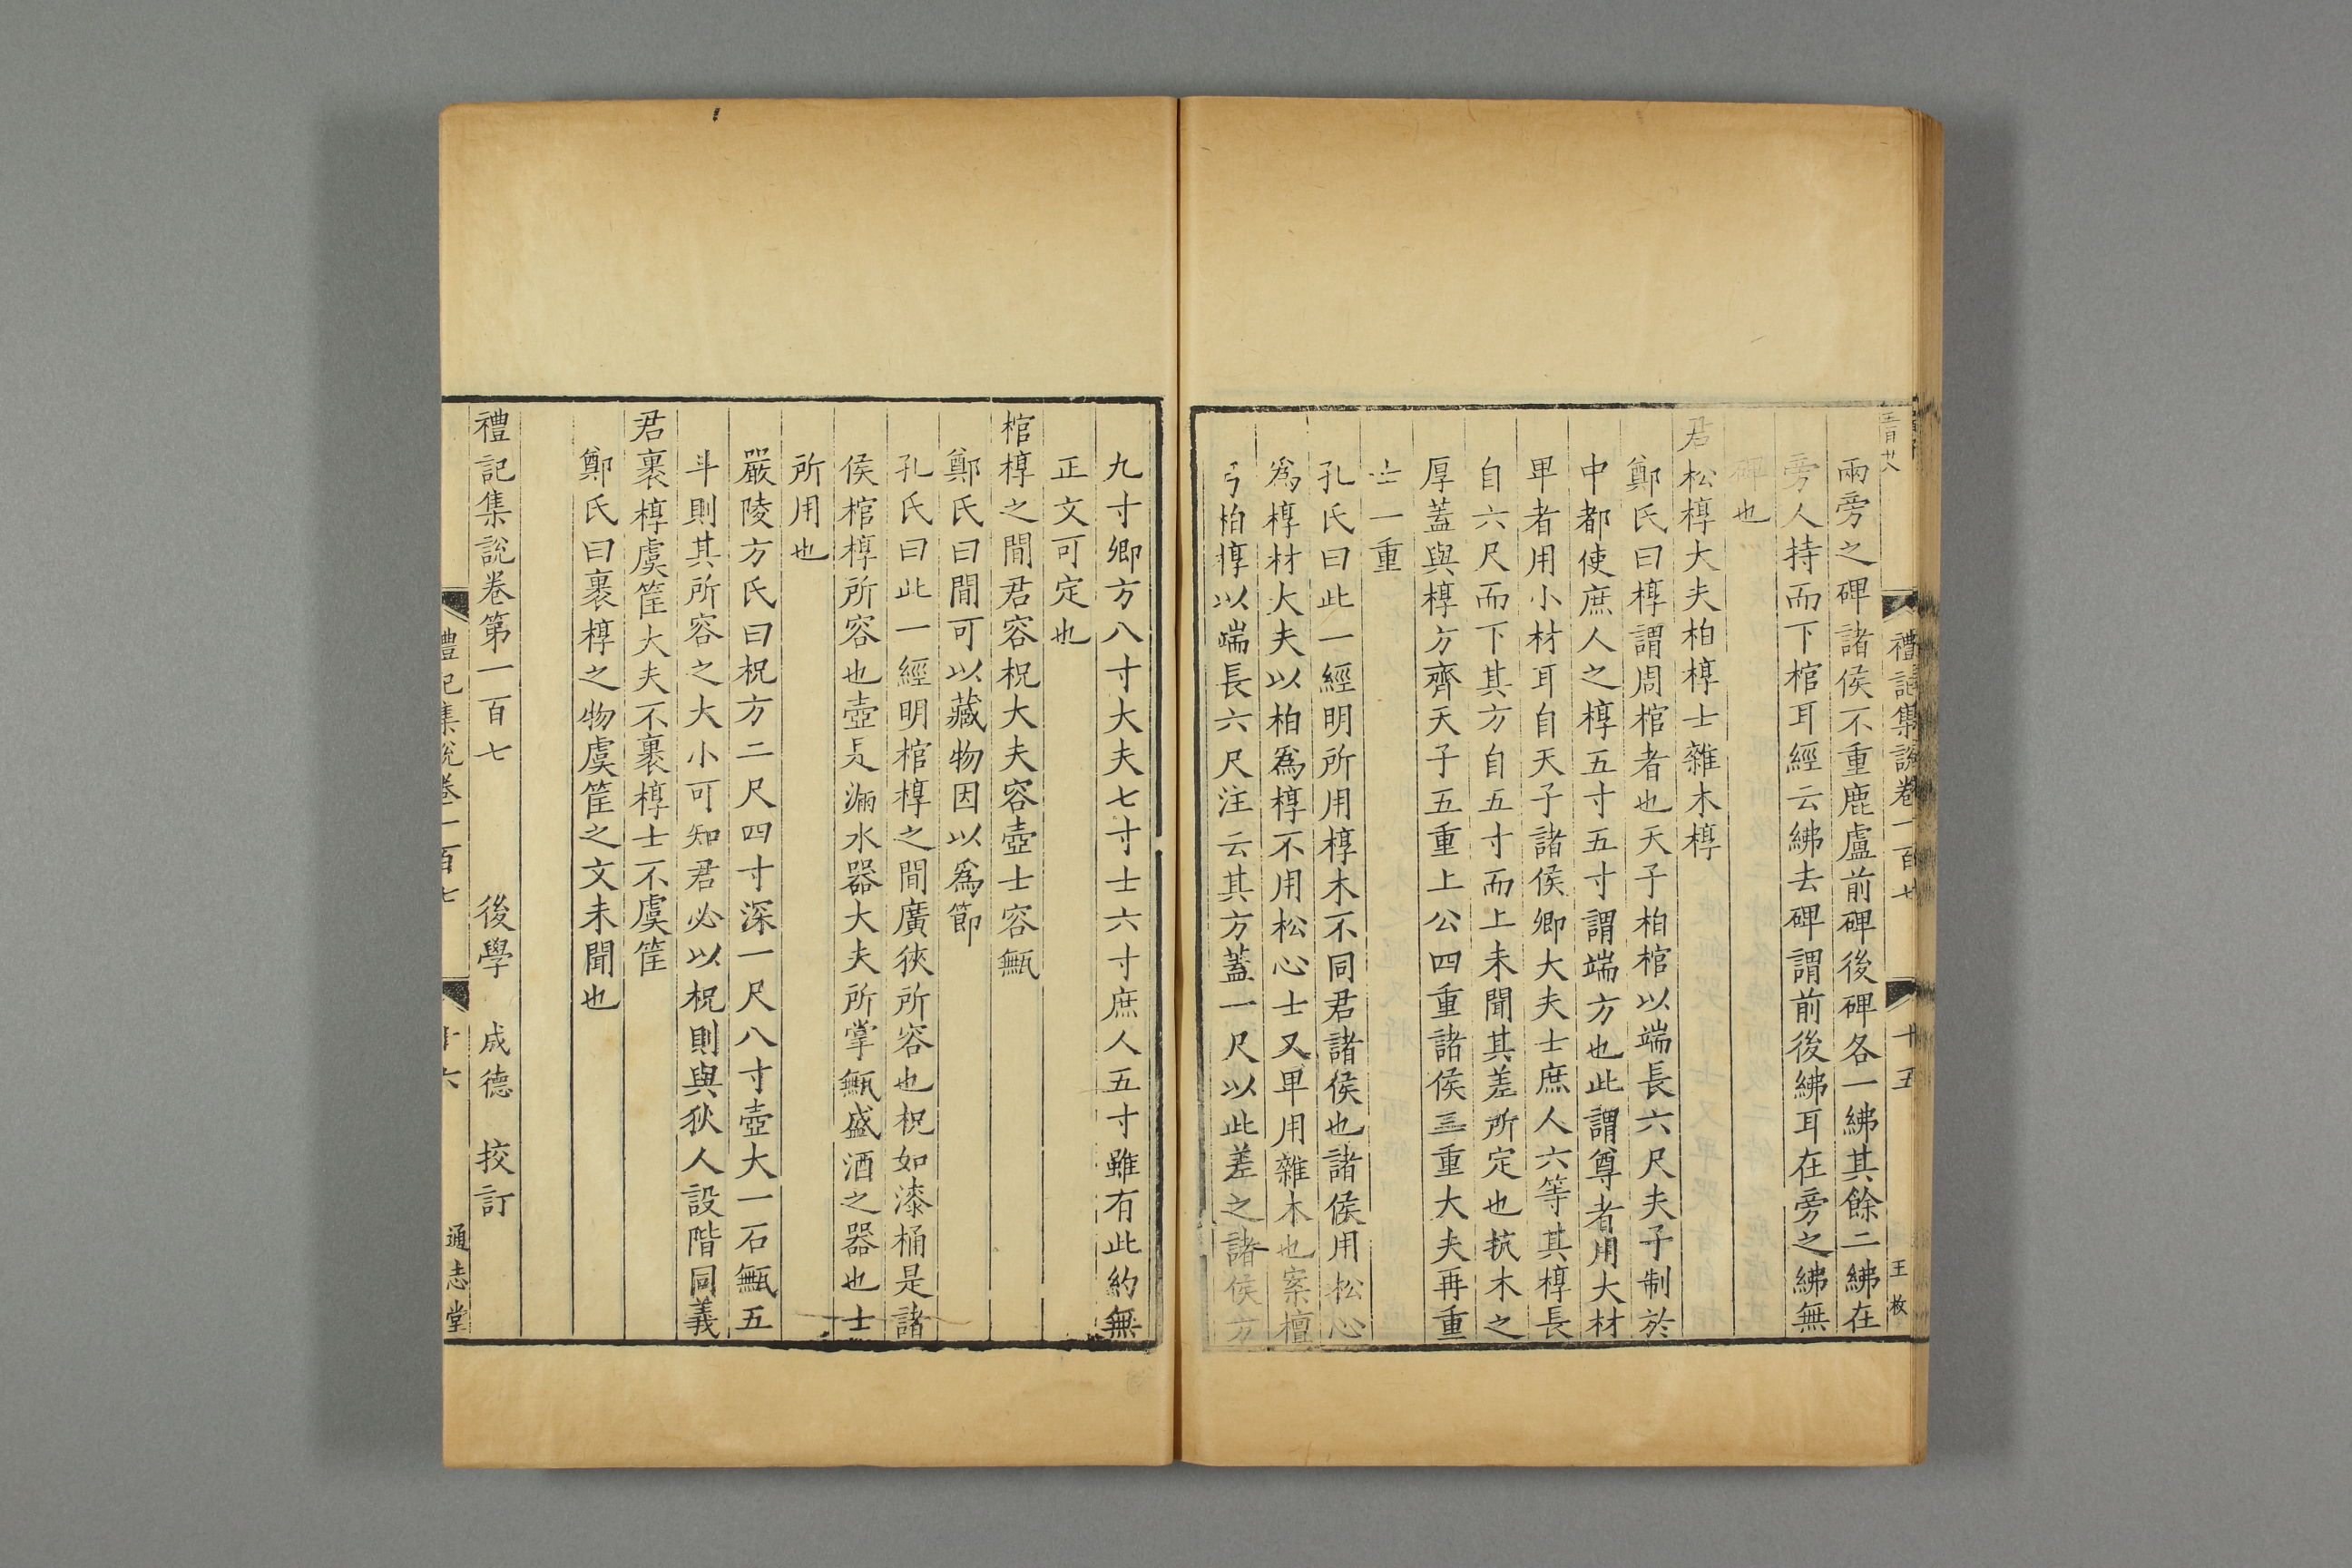 禮記集說卷一百七
十五
王枚
兩旁之碑諸侯不重鹿盧前碑後碑各一紼其餘二紼在
旁人持而下棺耳經云紼去碑謂前後紼耳在旁之紼無
碑也
君松椁大夫柏椁士雜木椁
鄭氏曰椁謂周棺者也天子柏棺以端長六尺夫子制於
中都使庶人之椁五寸五寸謂端方也此謂尊者用大材
卑者用小材耳自天子諸侯卿大夫士庶人六等其椁長
自六尺而下其方自五寸而上未聞其差所定也抗木之
厚蓋與椁方齊天子五重上公四重諸侯三重大夫再重
士一重
孔氏曰此一經明所用椁木不同君諸侯也諸侯用松心
為椁材大夫以柏為椁不用松心士又卑用雜木也案檀
弓柏椁以端長六尺注云其方蓋一尺以此差之諸侯方
九寸卿方八寸大夫七寸士六寸庶人五寸雖有此約無
正文可定也
棺椁之間君容柷大夫容壺士容甒
鄭氏曰間可以藏物因以為節
孔氏曰此一經明棺椁之間廣狹所容也柷如漆桶是諸
侯棺椁所容也壺是漏水器大夫所掌甒盛酒之器也士
所用也
嚴陵方氏曰柷方二尺四寸深一尺八寸壺大一石甒五
斗則其所容之大小可知君必以柷則與狄人設階同義
君裏椁虞筐大夫不裏椁士不虞筐
鄭氏曰裏椁之物虞筐之文未聞也
禮記集說卷第一百七 後學 成德 挍訂
禮記集說卷一百七
十六
通志堂